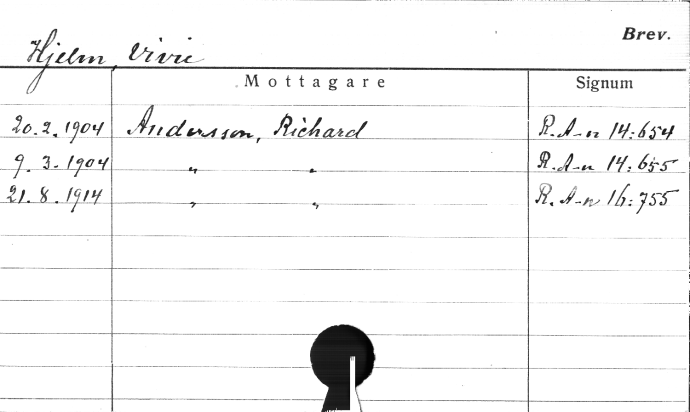 Brev.
Hjelm, Vivie
Mottagare Signum
20.2.1904 Andersson, Richard R. A-n 14:654
9.3.1904 „ „ R. A-n 14:655
21.8.1914 „ „ R. A-n 16:755